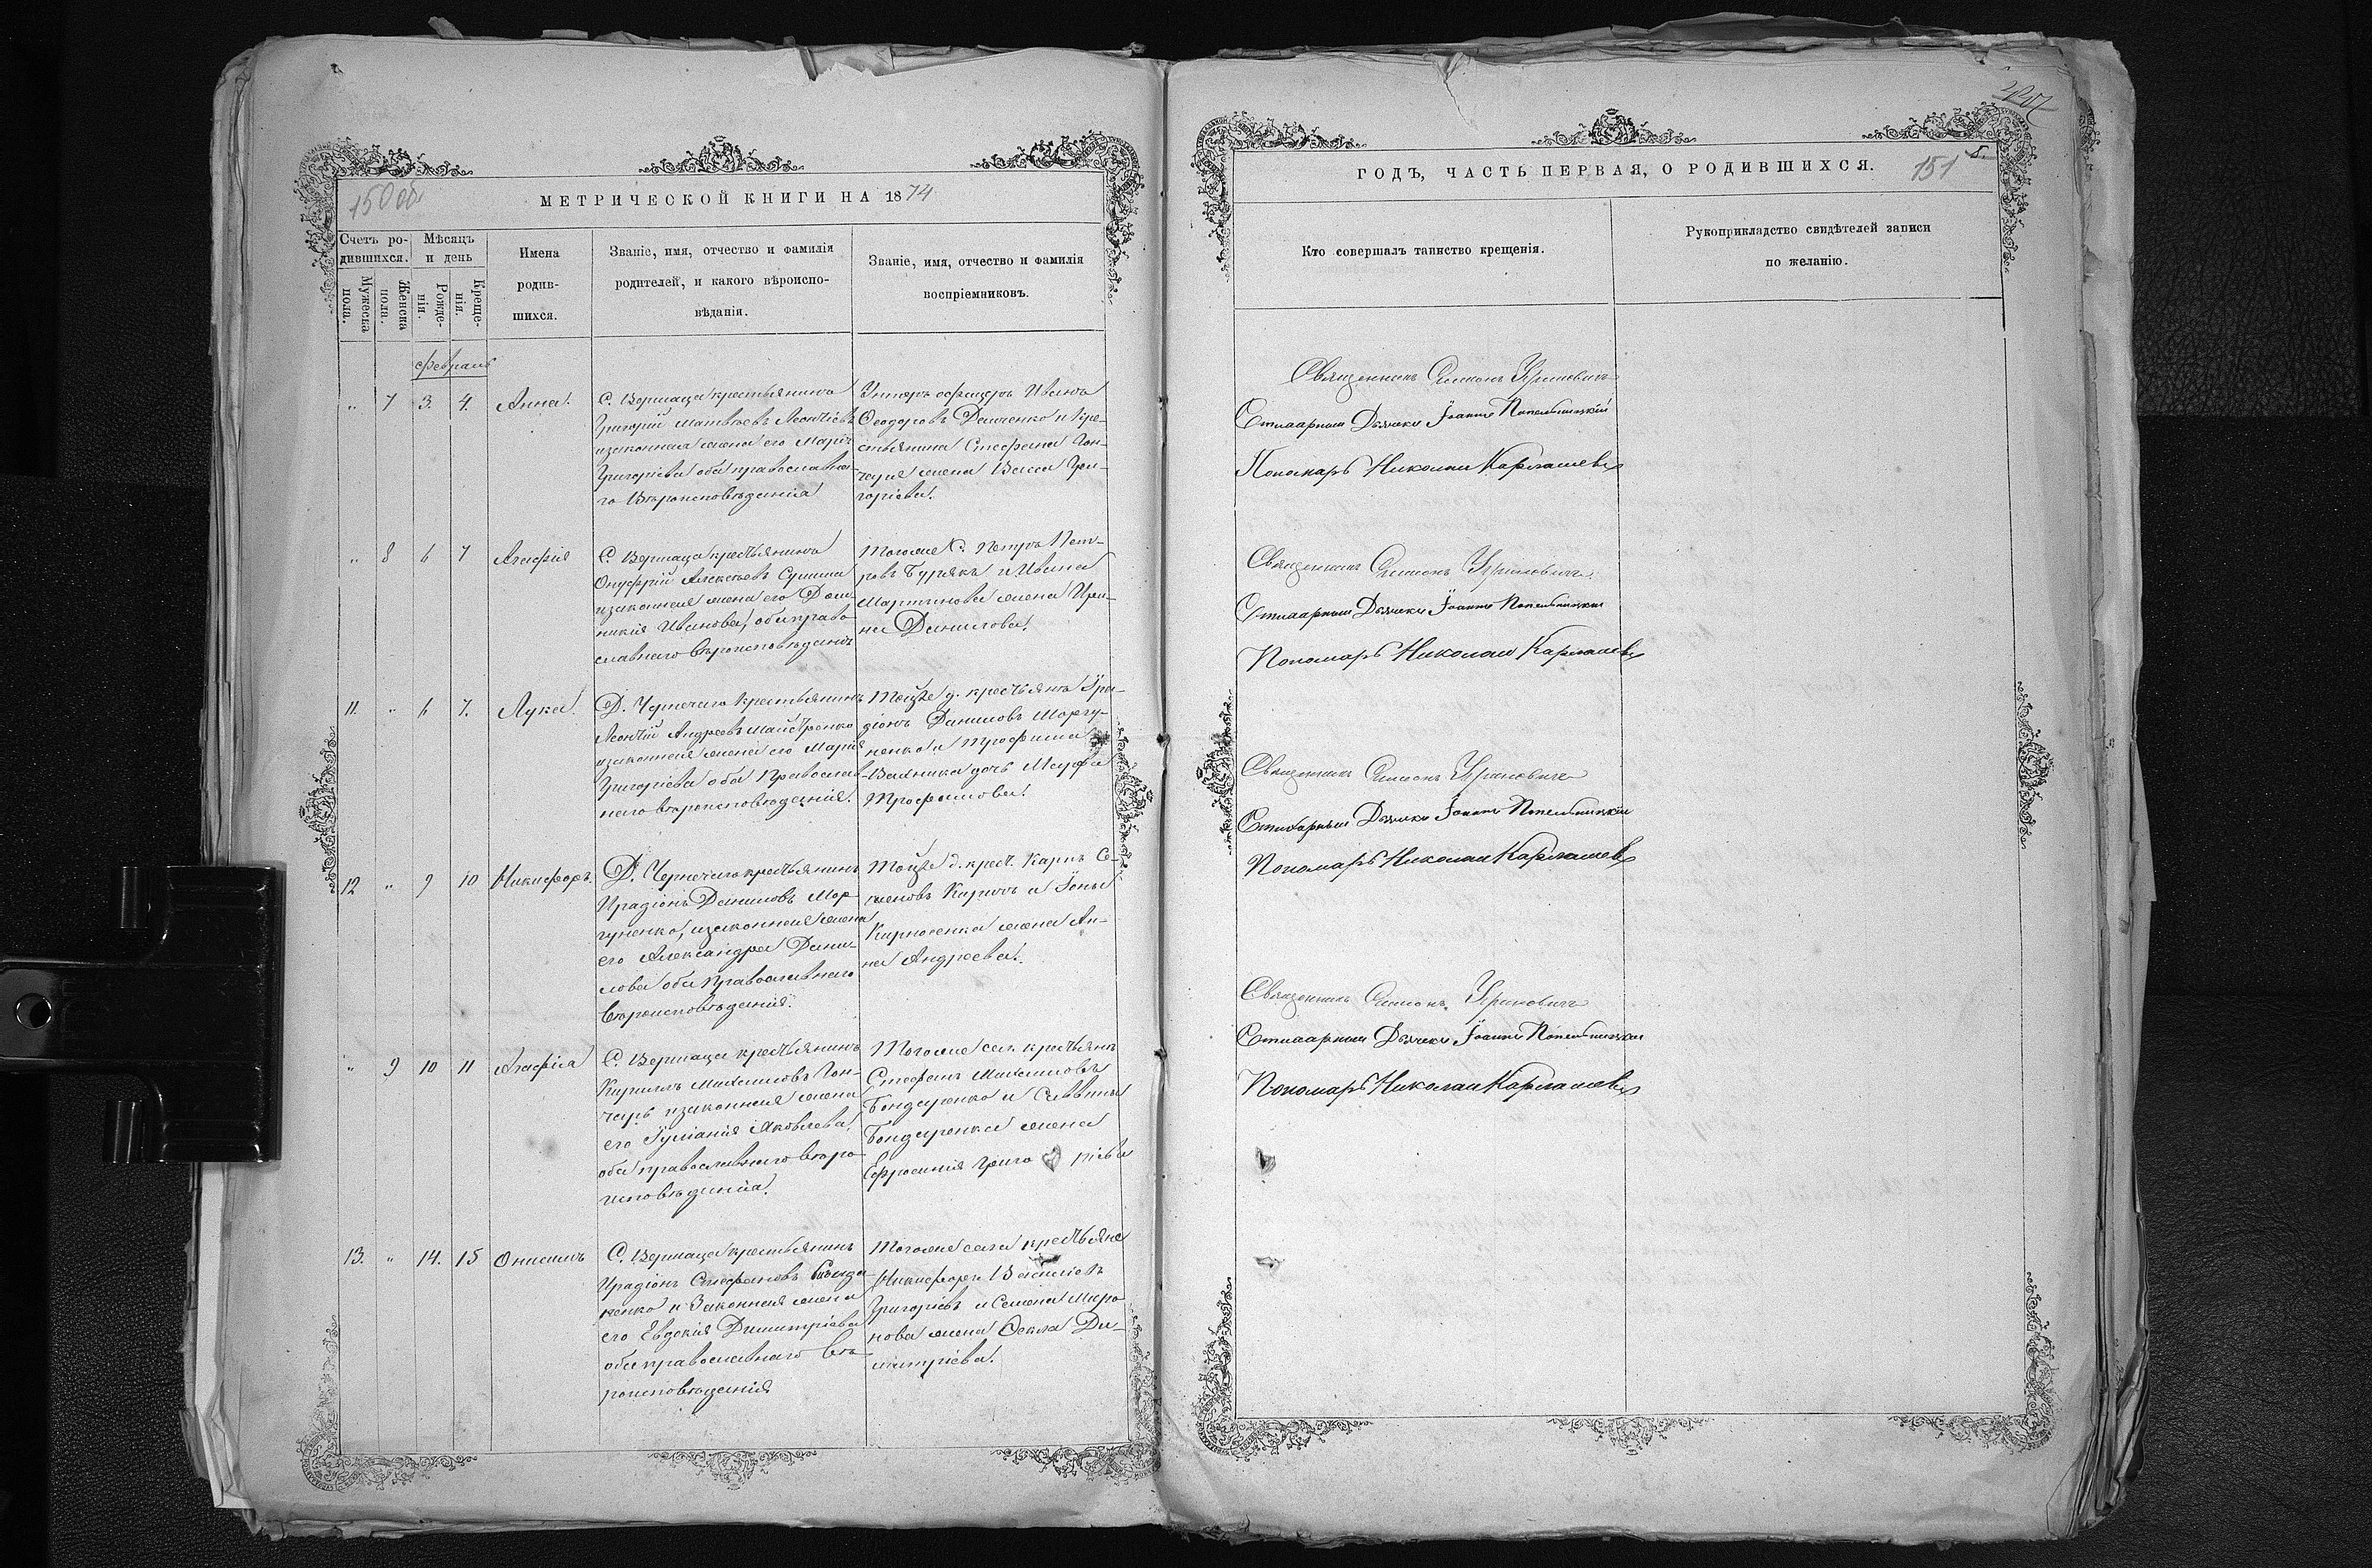 МЕТРИЧЕСКОЙ КНИГИ НА 1874
Счетъ ро-
дившихся.
Мужеска пола.
Женска пола.
Мѣсяцъ
и день
Рожде-
нія.
Креще-
нія.
Имена
родив-
шихся.
Званіе, имя, отчество и фамилія
родителей, и какого вѣроиспо-
вѣданія.
Званіе, имя, отчество и фамилія
воспріемниковъ.
февраль
" 7 3. 4. Анна.
С. Вермаца крестьянинъ
Григорій Матвѣевъ Леонтіевъ
и законная жена его Марія
Григоріева оба православна-
го Вѣроисповѣданія
Унтеръ офицеръ Иванъ
Ѳеодоровъ Демченко и кре-
стьянина Стефана Гон-
чара жена Васса Гри-
горіева.
" 8 6 7 Агафія
С. Вермаца крестьянинъ
Онуфрій Алексѣевъ Сушша
и законная жена его Дом-
никія Иванова, оба право-
славнаго Вѣроисповѣданія
Тогоже С. Петръ Пет-
ровъ Бурякъ и Ивана
Мартинова жена Ири-
на Данилова.
11. " 6 7. Лука
Д. Чернечаго Крестьянинъ
Леонтій Андреевъ Майстренко
и законная жена его Марія
Григоріева оба Православ-
наго вѣроисповѣданія.
Тойже д. крестьянъ Ира-
діонъ Даниловъ Моргу-
ненко и Трофима
дочь Марфа
Трофимова.
12 " 9 10 Никифоръ.
Д. Чернечаго крестьянинъ
Ирадіонъ Даниловъ Мор-
гуненко, и законная жена
его Александра Дани-
лова оба Православнаго
Вѣроисповѣданія.
Тойже д. крест. Карпъ Се-
меновъ и Іоны
жена Ан-
на Андреева.
" 9 10 11 Агафія
С. Вермаца крестьянинъ
Кириллъ Михаиловъ Гон-
чаръ и законная жена
его Іуліанія Яковлева.
оба православнаго вѣро-
исповѣданія.
Тогоже сел. крестьянъ
Стефанъ Михаиловъ
Бондаренко и Саввы
Бондаренка жена
Ефросинія Григоріева
13. " 14. 15 Онисимъ
С. Вермаца крестьянинъ
Ирадіонъ Стефановъ
и Законная жена
его Евдокія Димитріева
оба православнаго Вѣ-
роисповѣданія
Тогоже села крестьяне
Никифоръ Василіевъ
Григоріевъ и Семена Миро-
нова жена Ѳекла Ди-
митріева.
ГОДЪ, ЧАСТЬ ПЕРВАЯ, О РОДИВШИХСЯ. 151
Кто совершалъ таинство крещенія.
Рукоприкладство свидѣтелей записи
по желанію.
Священникъ Симеонъ
Стихарный Дьячекъ Іоаннъ Попельницкій
Пономарь Николай Карташевъ
Священникъ Симеонъ
Стихарный Дьячекъ Іоаннъ Попельницкій
Пономарь Николай Карташевъ
Священникъ Симеонъ
Стихарный Дьячекъ Іоаннъ Попельницкій
Пономарь Николай Карташевъ
Священникъ Симеонъ
Стихарный Дьячекъ Іоаннъ Попельницкій
Пономарь Николай Карташевъ